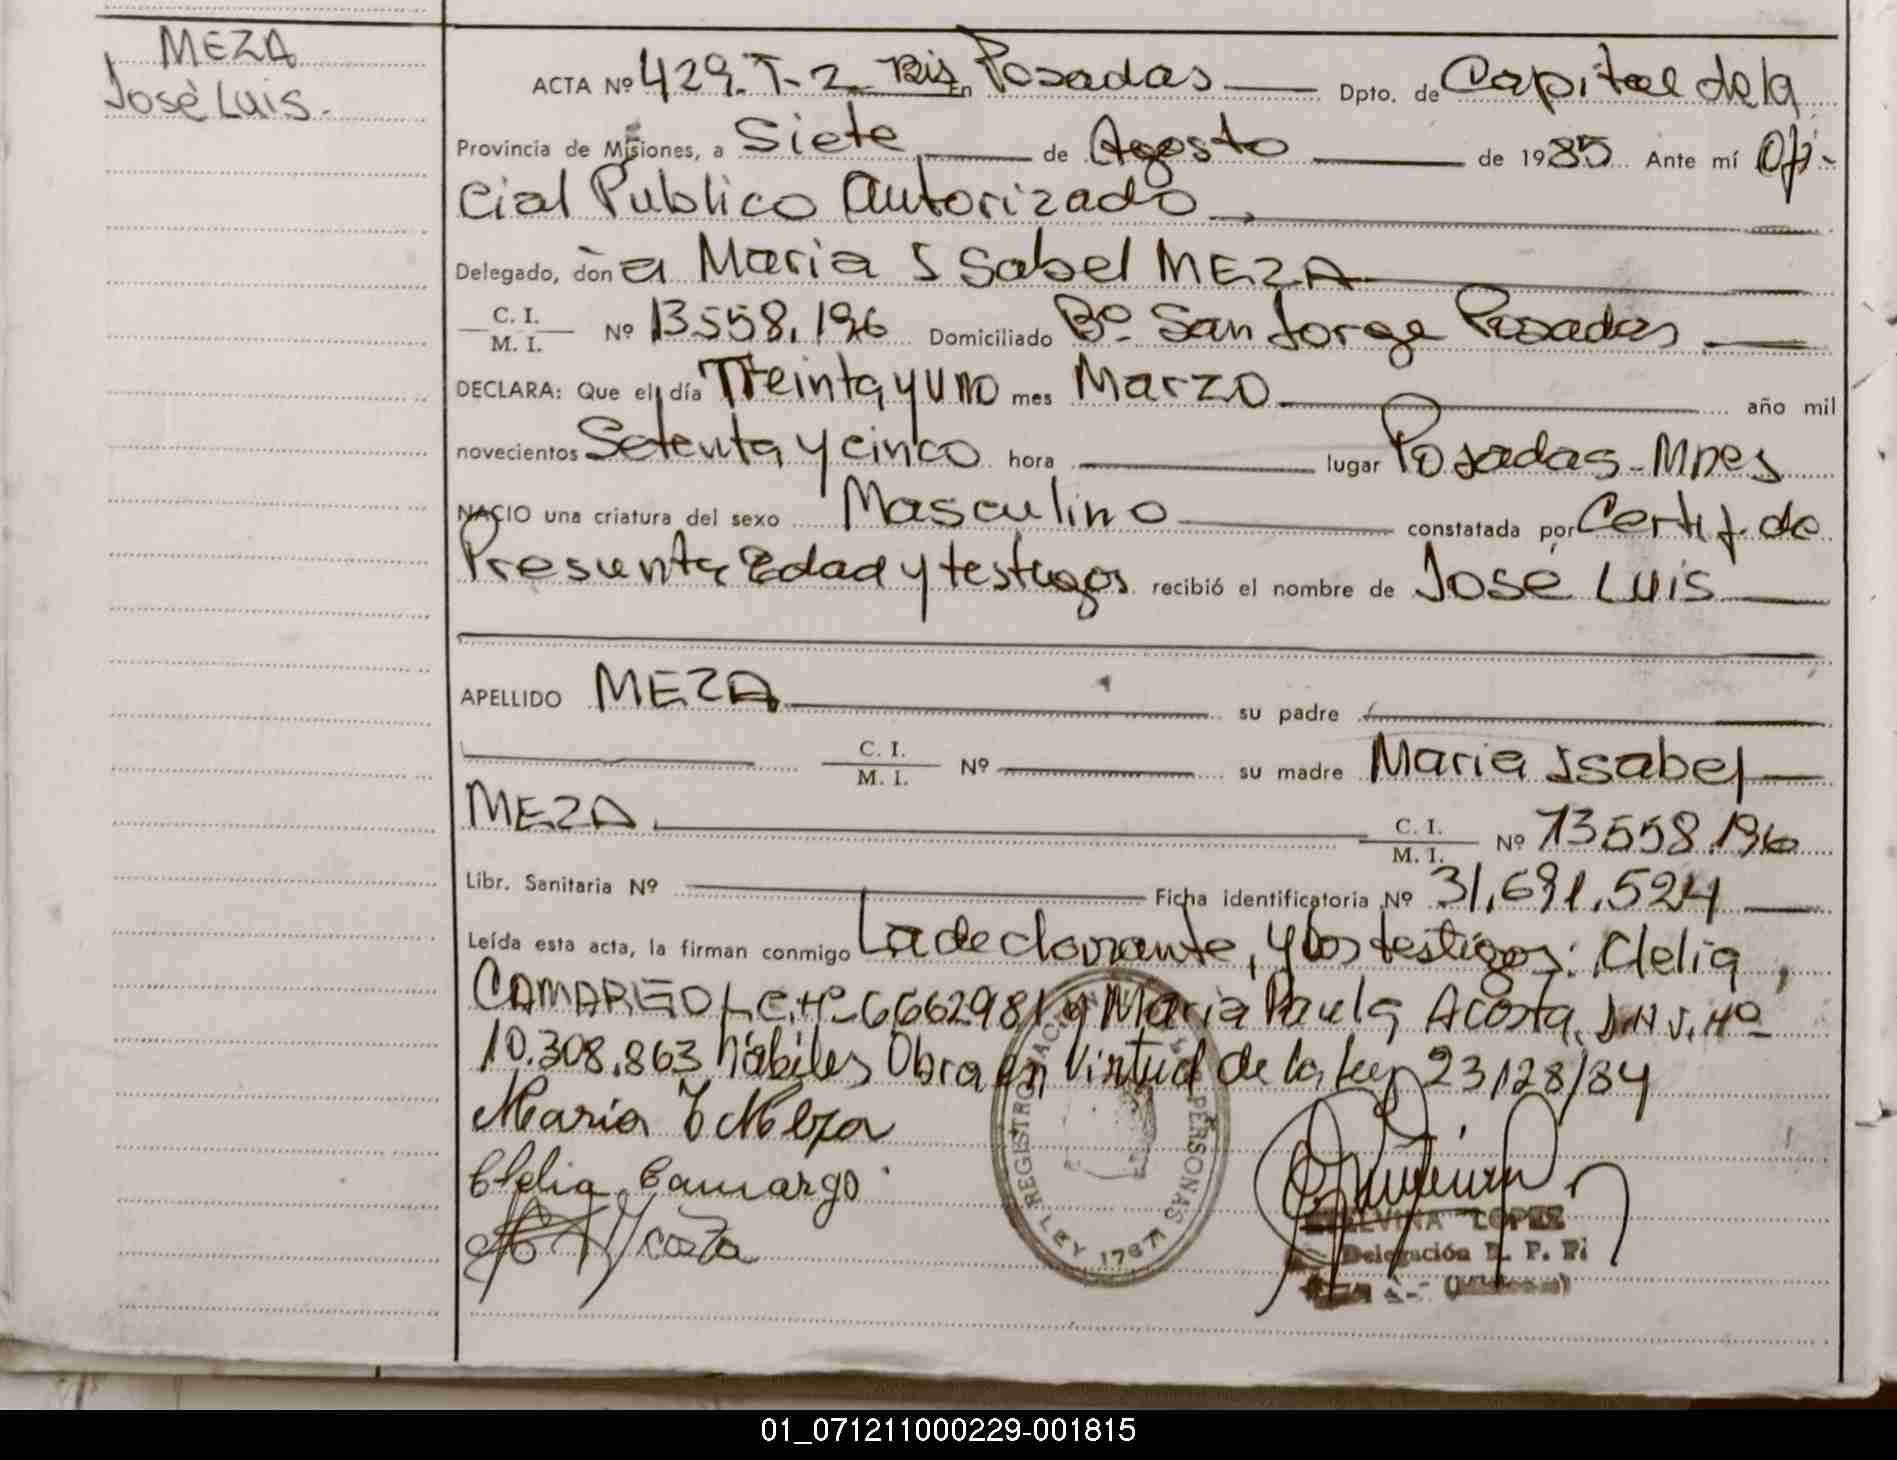 MEZA
José Luis.
ACTA Nº 429. T-2 Bis En Posadas Dpto. de Capital de la
Provincia de Misiones, a Siete de Agosto de 1985. Ante mí Ofi-
cial Publico Autorizado
Delegado, don a Maria Isabel MEZA
C. I.
M. I. Nº 13.558.196 Domiciliado Bº San Jorge Posadas
DECLARA: Que el día Treinta y uno mes Marzo año mil
novecientos Setenta y cinco hora lugar Posadas - Mnes
NACIO una criatura del sexo Masculino constatada por Certif. de
Presunta Edad y testigos recibió el nombre de José Luis
APELLIDO MEZA su padre
C. I.
M. I. Nº su madre Maria Isabel
MEZA C. I.
M. I. Nº 13558.196
Libr. Sanitaria Nº Ficha identificatoria Nº 31.691.524
Leída esta acta, la firman conmigo La declarante, y los testigos: Clelia,
CAMARGO L.C. Nº 6662981 y Maria Paula Acosta, D.N.I. Nº
10.308.863 hábiles Obra en Virtud de la Ley 23128/84
Maria I Meza
Clelia Camargo
Acosta
REGISTRO NACIONAL DE PERSONAS
LEY 17671
LOPEZ
Delegación R. P. P.
(Misiones)
01_071211000229-001815